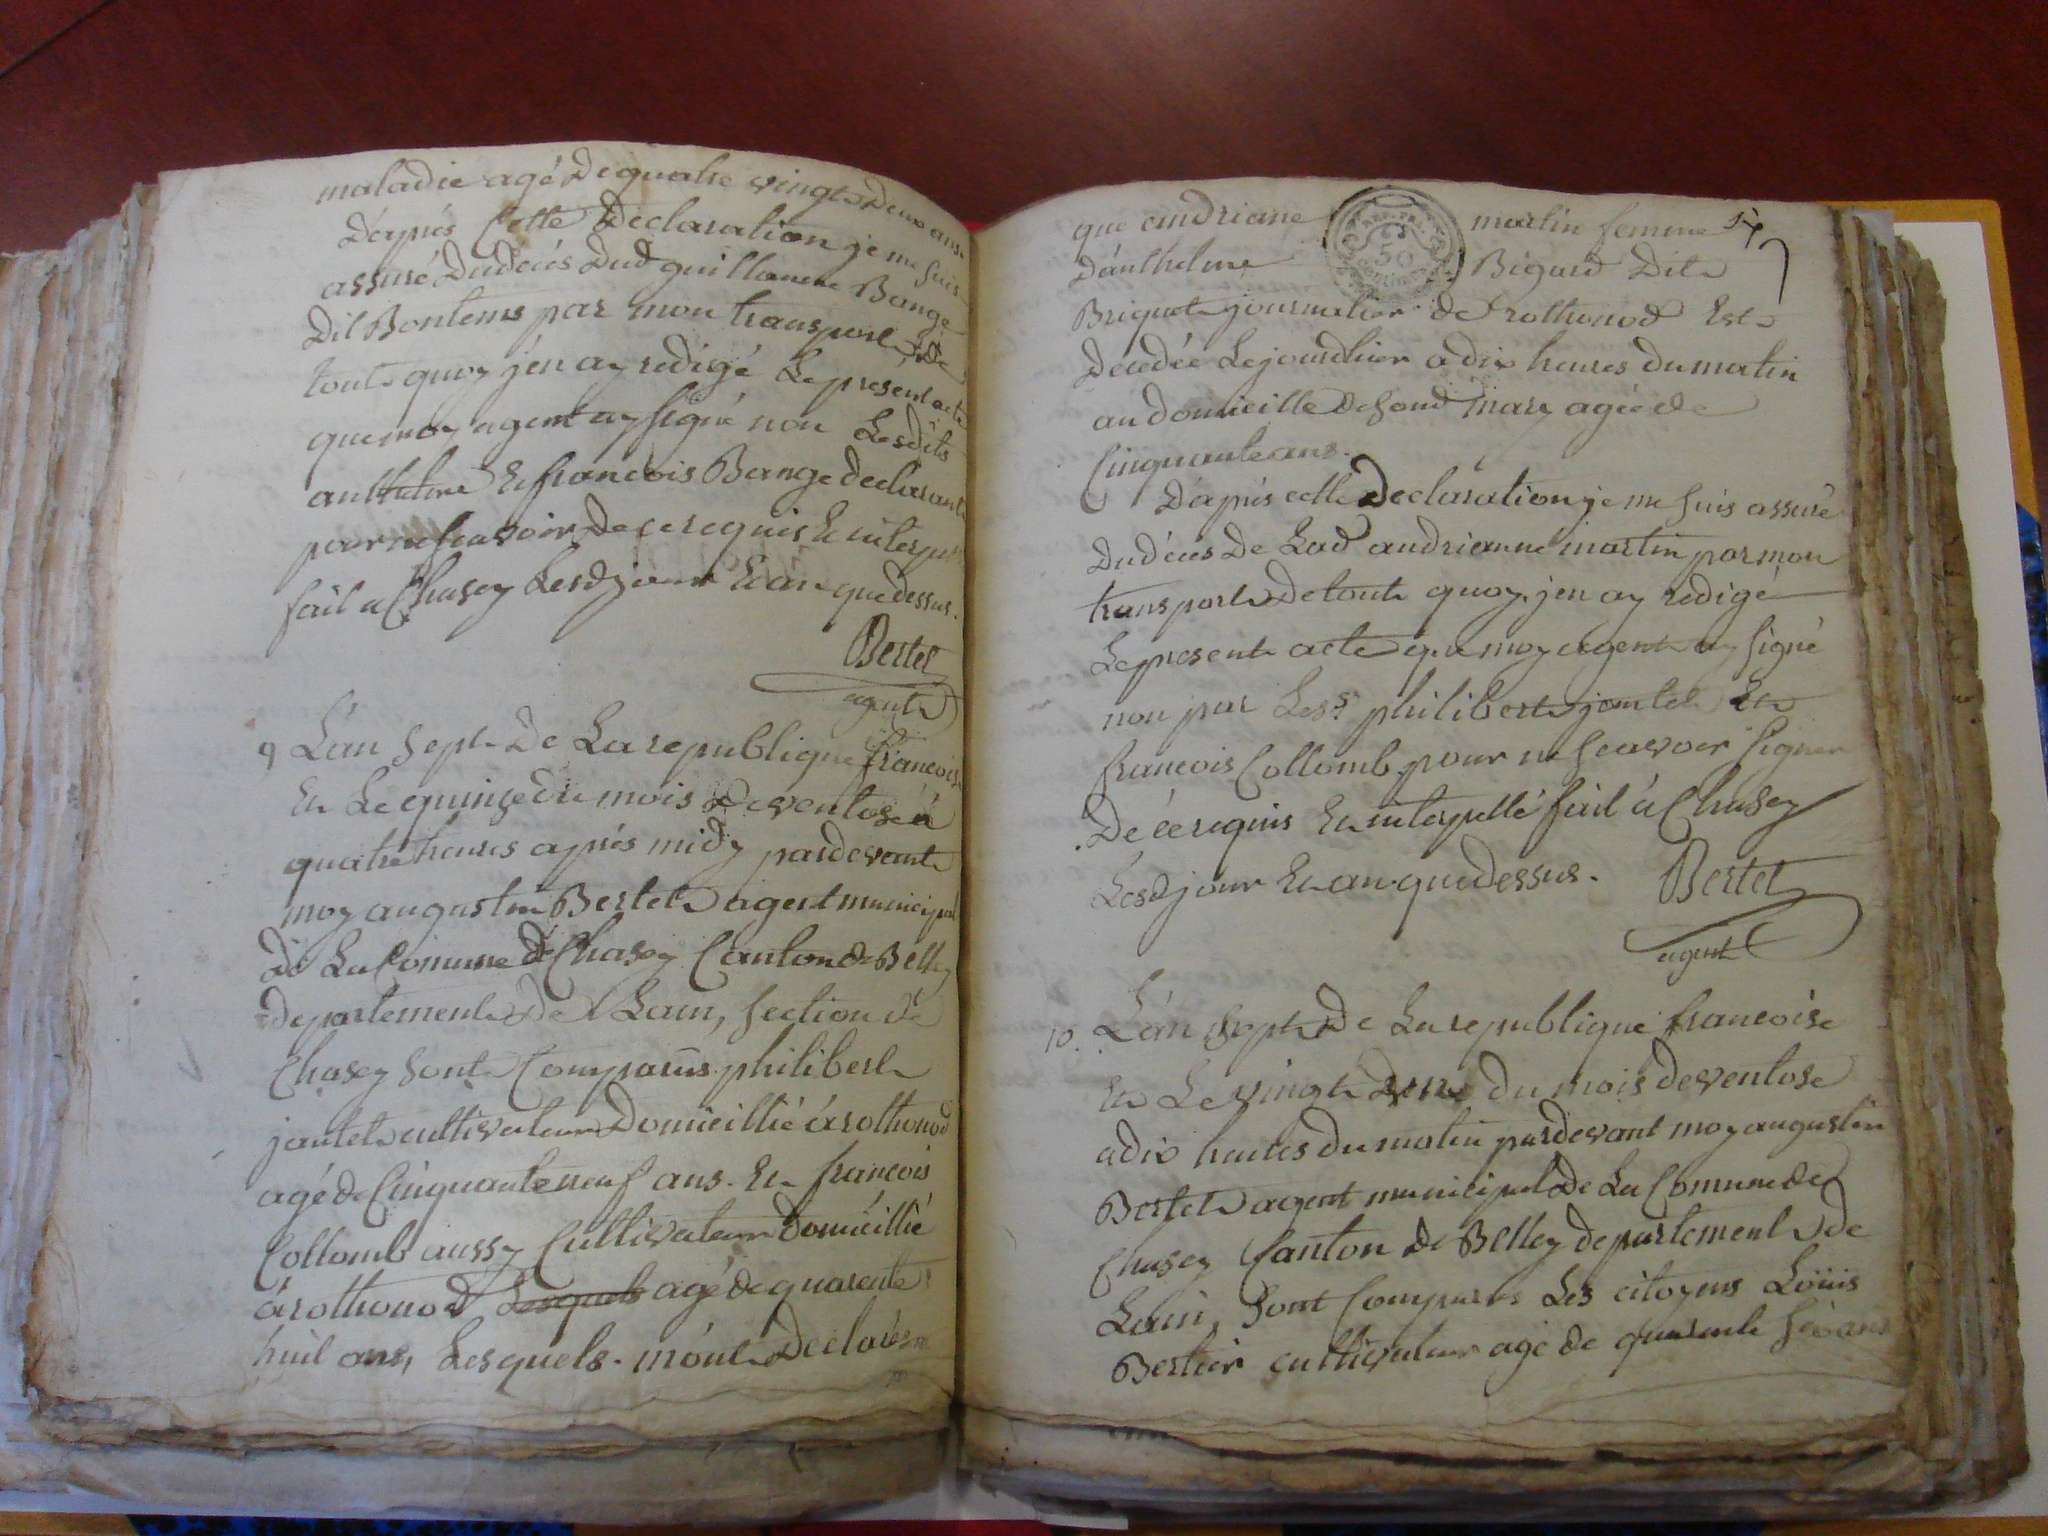 maladie agé de quatre vingts deux ans
D'apres Cette Declaration je me suis
assuré Dudécés Dud guillaume Bange
Dit Bontems par mon transport De
tout quoy j'en ay redigé Le present acte
que moy agent ay signé non Lesdits
anthelme Et francois Bange declarants
pour ne scavoir de ce requis Et interpellé
fait a Chasey Lesd jour Et an que dessus.
Bertet
agent
9 L'an sept De La republique francoise
Et Le quinze du mois de ventose à
quatre heures aprés midy pardevant
moy augustin Bertet agent municipal
de La Comune de Chasey Canton de Belley
departement de Lain, section de
Chasey sont Comparus philibert
jantet cultivateur Domicillié à rothonod
agé de Cinquante neuf ans. Et francois
Collomb aussy Cultivateur domicillié
à rothonod Lesquels agé de quarente
huit ans, Lesquels m'ont Declaré
que andriane martin femme
D'anthelme Bigard Dit
Briquet journalier de rothonod Est
decedée Le jourdhier a dix heures du matin
au domicille de sond mary agée de
Cinquante ans.
D'apres cette Declaration je me suis assuré
Dudécés De Lad andrianne martin par mon
transport De tout quoy j'en ay redigé
Le present acte que moy agent ay signé
non par Les.s philibert jantet Et
francois Collomb pour ne scavoir signer
De ce requis Et interpellé fait à Chasey
Lesd jour Et an que dessus. Bertet
agent
10. L'an sept De La republique francoise
Et Le vingt deux du mois de ventose
a dix heures du matin pardevant moy augustin
Bertet agent municipal De La Comune de
Chasey Canton de Belley departement de
Lain, sont Comparus Les citoyens Loüis
Bertier cultivateur agé de quarente six ans